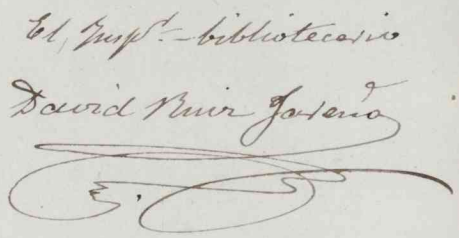 El Inspr. - bibliotecario
David Ruiz